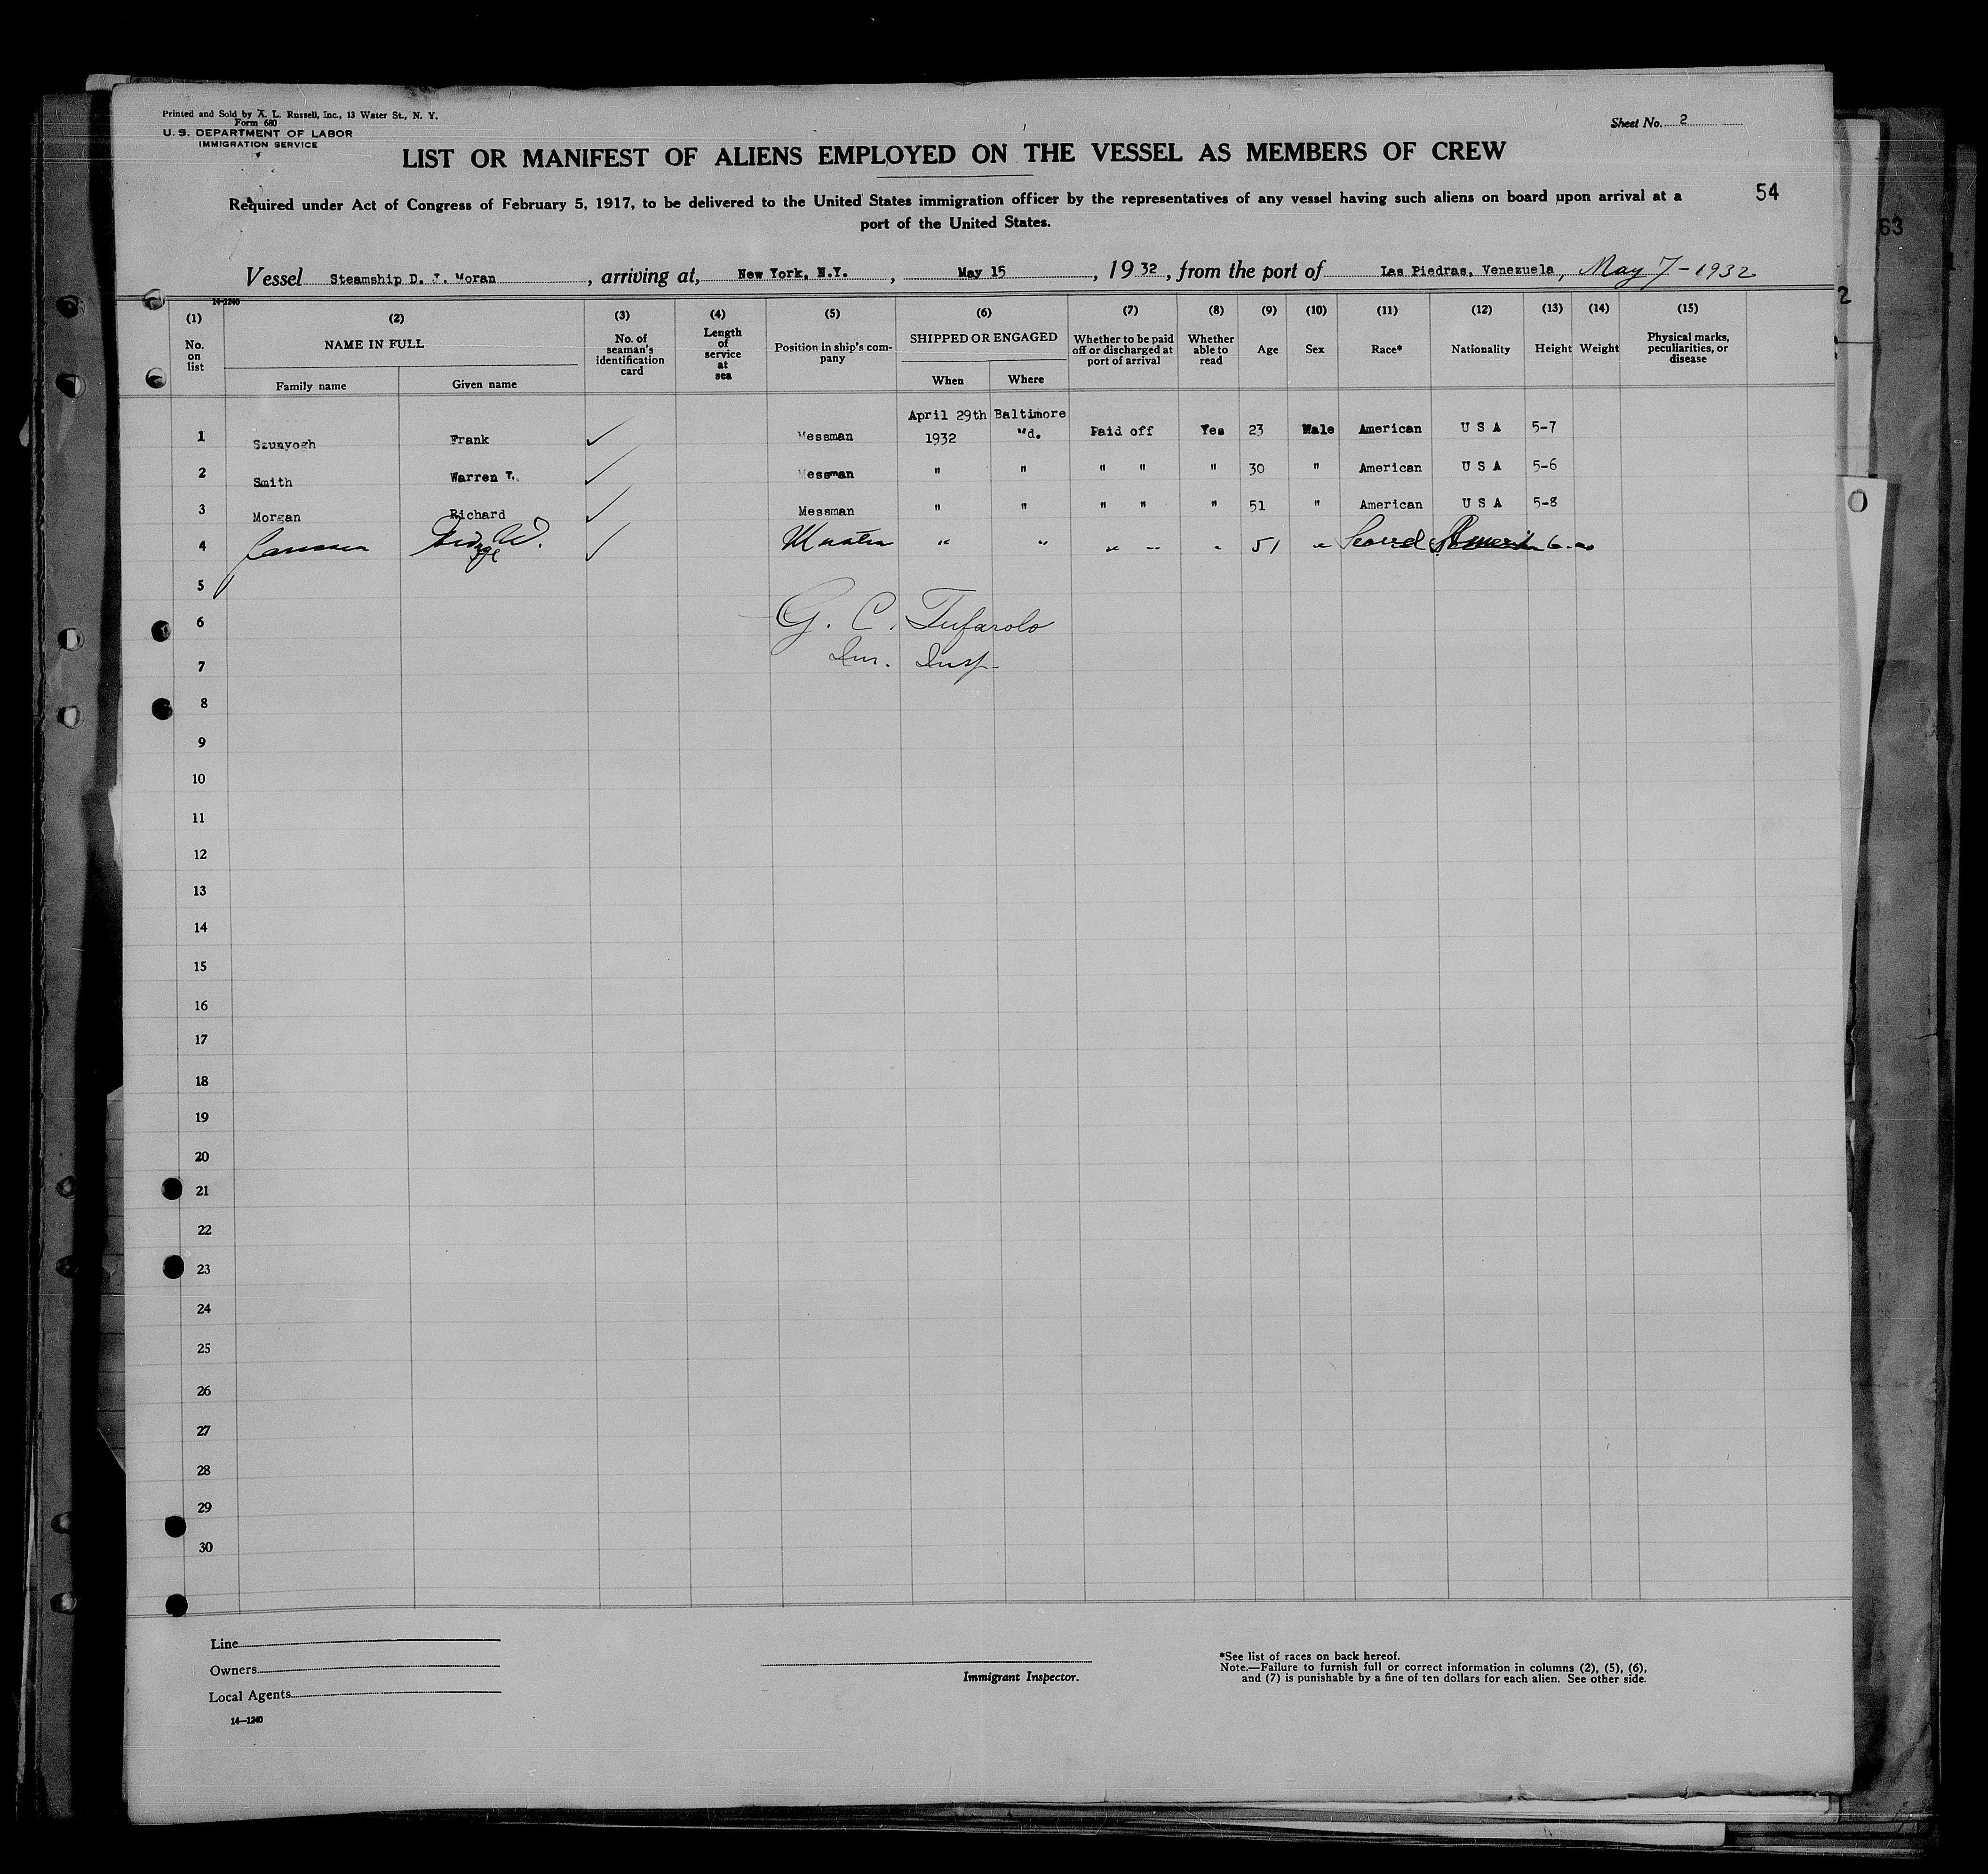 Printed and Sold by X. L. Russell, Inc., 13 Water St., N. Y.
Form 680
U. S. DEPARTMENT OF LABOR
IMMIGRATION SERVICE
Sheet No. 2
LIST OR MANIFEST OF ALIENS EMPLOYED ON THE VESSEL AS MEMBERS OF CREW
Required under Act of Congress of February 5, 1917, to be delivered to the United States immigration officer by the representatives of any vessel having such aliens on board upon arrival at a
port of the United States.
54
63
Vessel Steamship D. J. Moran, arriving at, New York, N.Y., May 15, 1932, from the port of Las Piedras, Venezuela, May 7-1932
14-1240
2
(1) (2) (3) (4) (5) (6) (7) (8) (9) (10) (11) (12) (13) (14) (15)
No. on list NAME IN FULL Family name Given name No. of seaman's identification card Length of service at sea Position in ship's company SHIPPED OR ENGAGED When Where Whether to be paid off or discharged at port of arrival Whether able to read Age Sex Race* Nationality Height Weight Physical marks, peculiarities, or disease
1 Szunyogh Frank ✓ Messman April 29th 1932 Baltimore Md. Paid off Yes 23 Male American U S A 5-7
2 Smith Warren T. ✓ Messman " " " " " 30 " American U S A 5-6
3 Morgan Richard ✓ Messman " " " " " 51 " American U S A 5-8
4 Janssen George W. ✓ Master " " " " " 51 " Scand
5
6 G. C. Tufarolo
7 Im. Insp.
8
9
10
11
12
13
14
15
16
17
18
19
20
21
22
23
24
25
26
27
28
29
30
Line
Owners
Local Agents
14—1240
Immigrant Inspector.
*See list of races on back hereof.
Note.—Failure to furnish full or correct information in columns (2), (5), (6),
and (7) is punishable by a fine of ten dollars for each alien. See other side.